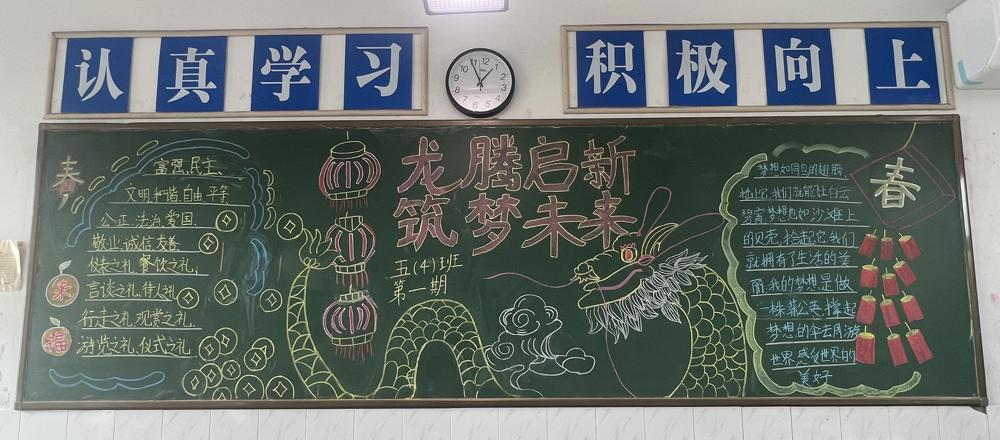 认真学习
积极向上
12
1
2
3
4
5
6
7
8
9
10
11
龙腾启新
筑梦未来
五(4)班
第一期
春
来
福
富强、民主、
文明、和谐、自由、平等
公正、法治、爱国、
敬业、诚信、友善、
仪表之礼、餐饮之礼、
言谈之礼、待人礼
行走之礼、观赏之礼、
游览之礼、仪式之礼
梦想如同鸟的翅膀
插上它,我们就能让白云
碧霄,梦想也如沙滩上
的贝壳,拾起它,我们
就拥有了生活的美
丽,我的梦想是做
一株蒲公英,撑起
梦想的伞去周游
世界,感受世界的
美好
春